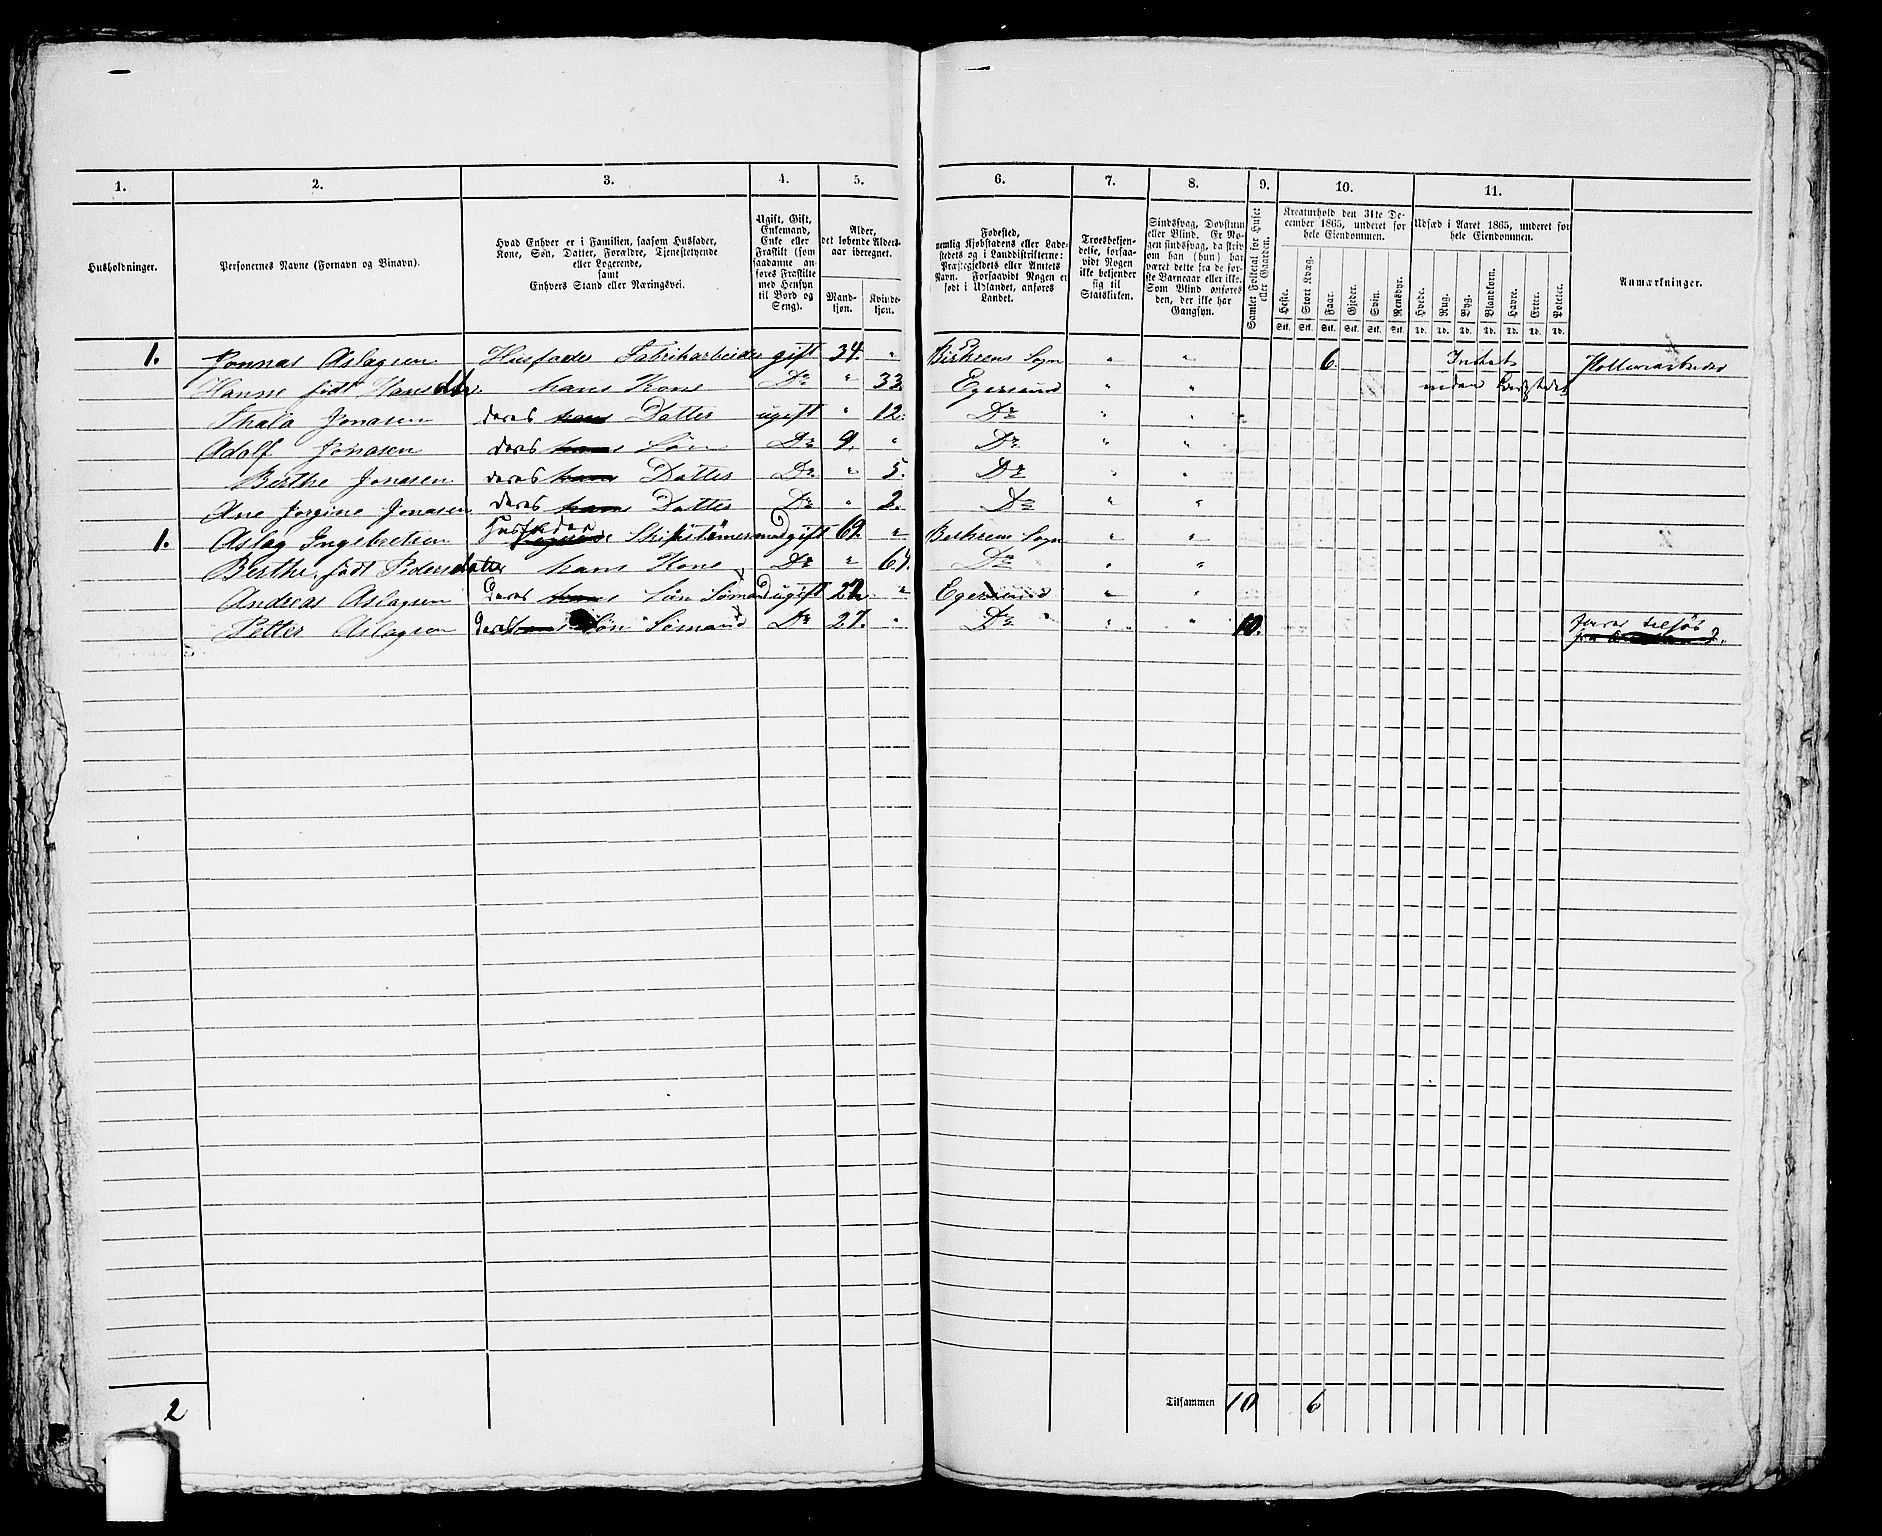 1. 2. 3. 4. 5. 6. 7. 8. 9. 10. 11.
Husholdninger.
Personernes Navne (Fornavn og Binavn).
Hvad Enhver er i Familien, saasom Husfader,
Kone, Søn, Datter, Forældre, Tjenestetyende
eller Logerende,
samt
Enhvers Stand eller Næringsvei.
Ugift, Gift,
Enkemand,
Enke eller
Fraskilt (som
saadanne an-
føres Fraskilte
med Hensyn
til Bord og
Seng).
Alder,
det løbende Alders-
aar iberegnet.
Mand-
kjøn.
Kvinde-
kjøn.
Fødested,
nemlig Kjøbstadens eller Lade-
stedets og i Landdistrikterne:
Præstegjeldets eller Amtets
Navn. Forsaavidt Nogen er
født i Udlandet, anføres
Landet.
Troesbekjen-
delse, forsaa-
vidt Nogen
ikke bekjender
sig til
Statskirken.
Sindssvag, Døvstum
eller Blind. Er No-
gen sindssvag, da skriv
om han (hun) har
været dette fra de før-
ste Barneaar eller ikke.
Som Blind anføres
den, der ikke har
Gangsyn.
Samlet Folketal for Huset
eller Gaarden.
Kreaturhold den 31te De-
cember 1865, underet for
hele Eiendommen.
Heste. Stort Kvæg. Faar. Gjeder. Svin. Rensdyr.
Stk. Stk. Stk. Stk. Stk. Stk.
Udsæd i Aaret 1865, underet for
hele Eiendommen.
Hvede. Rug. Byg. Blandkorn. Havre. Erter. Poteter.
Td. Td. Td. Td. Td. Td. Td.
Anmærkninger.
1. Jonnas Aslagsen Husfader Fabrikarbeider gift 34. " Birkrems Sogn " " 6 Intet
Hanne født Hansdtr. hans Kone Do " 33. Egersund " "
Thala Jonasen deres hans Datter ugift " 12. Do " "
Adolf Jonasen deres hans Søn Do 9. " Do " "
Berthe Jonasen deres hans Datter Do " 5. Do " "
Ane Jorgine Jonasen deres hans Datter Do " 2. Do " "
1. Aslag Ingebretsen Husfader Skibstømermand gift 69. " Birkrems Sogn " "
Berthe, født Pedersdatter hans Kone Do " 64. Do " "
Andreas Aslagsen Deres hans Søn Sømand ugift 22. " Egersund " "
Petter Aslagsen Deres hans Søn Sømand Do 27. " Do " " 10. farer tilsjøs
2 Tilsammen 10 6